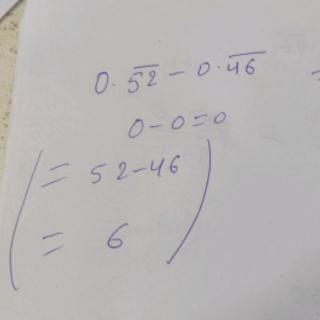 0.5̅2̅ - 0.4̅6̅
0-0=0
= 52-46
= 6